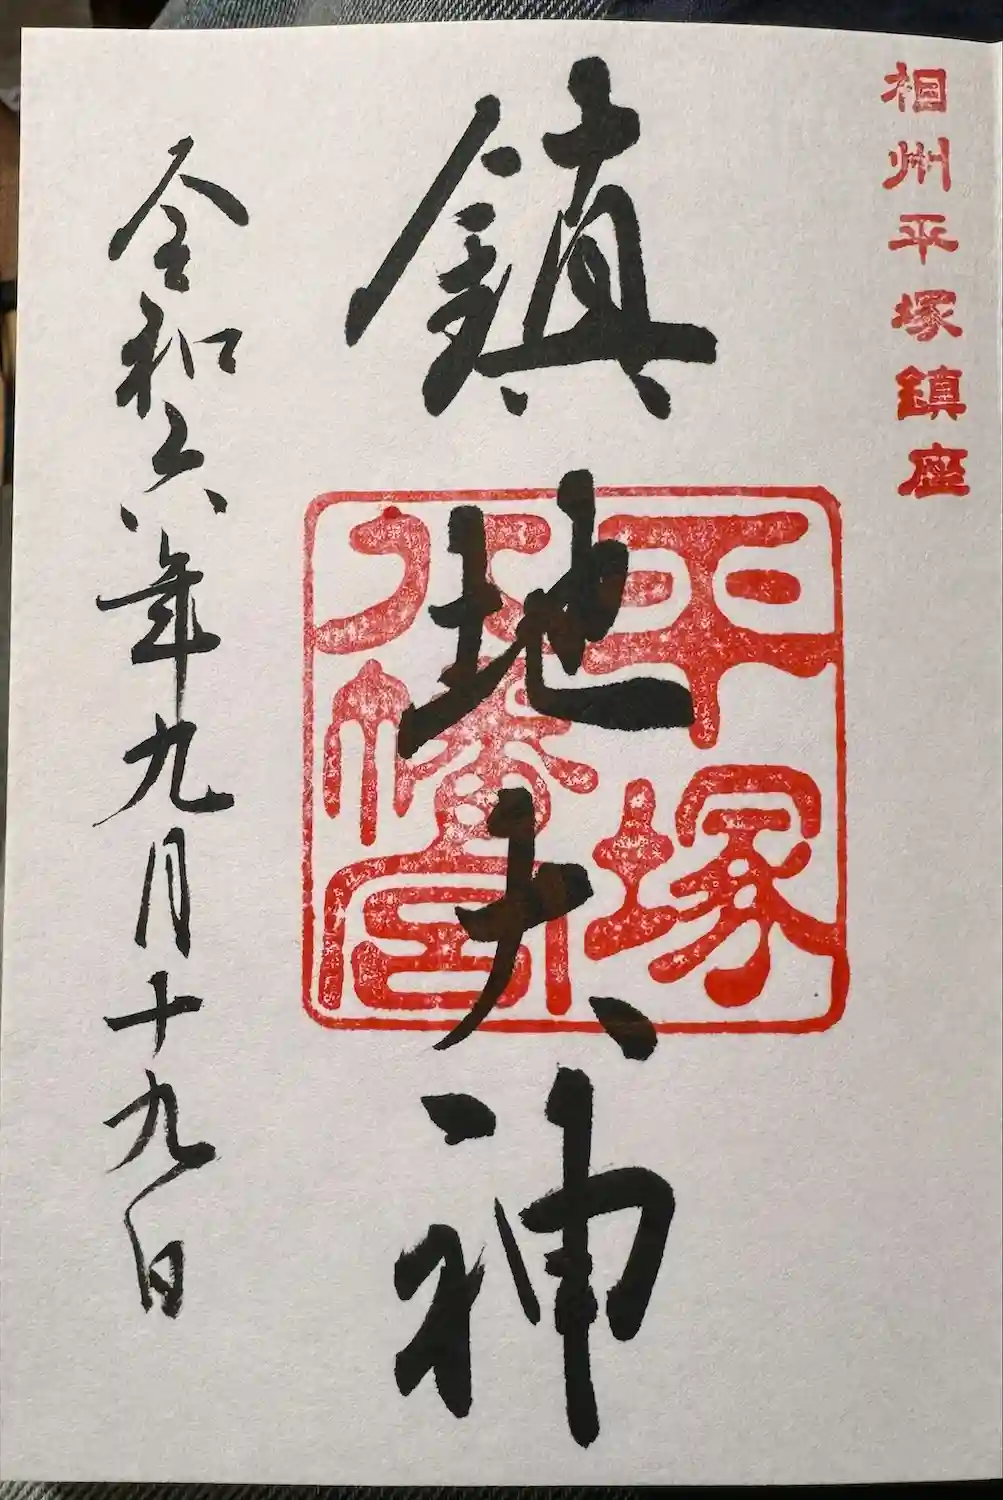 相州平塚鎮座
鎮地大神
平塚
八幡宮
令和六年九月十九日